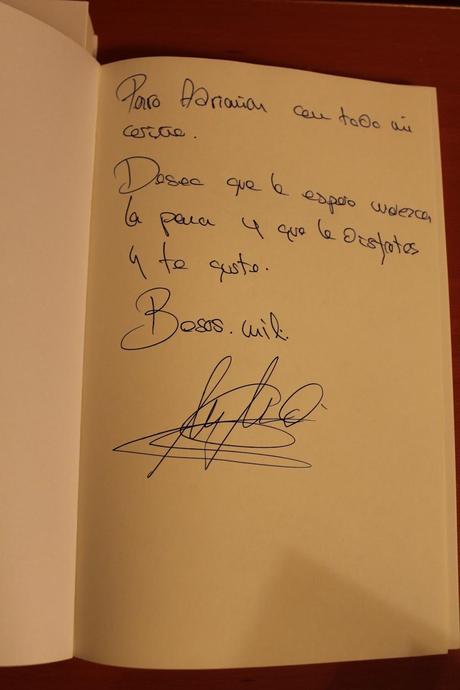 Para Adrianar con todo mi
cariño.
Deseo que la espera merezca
la pena y que la disfrutes
y te guste.
Besos. mil.